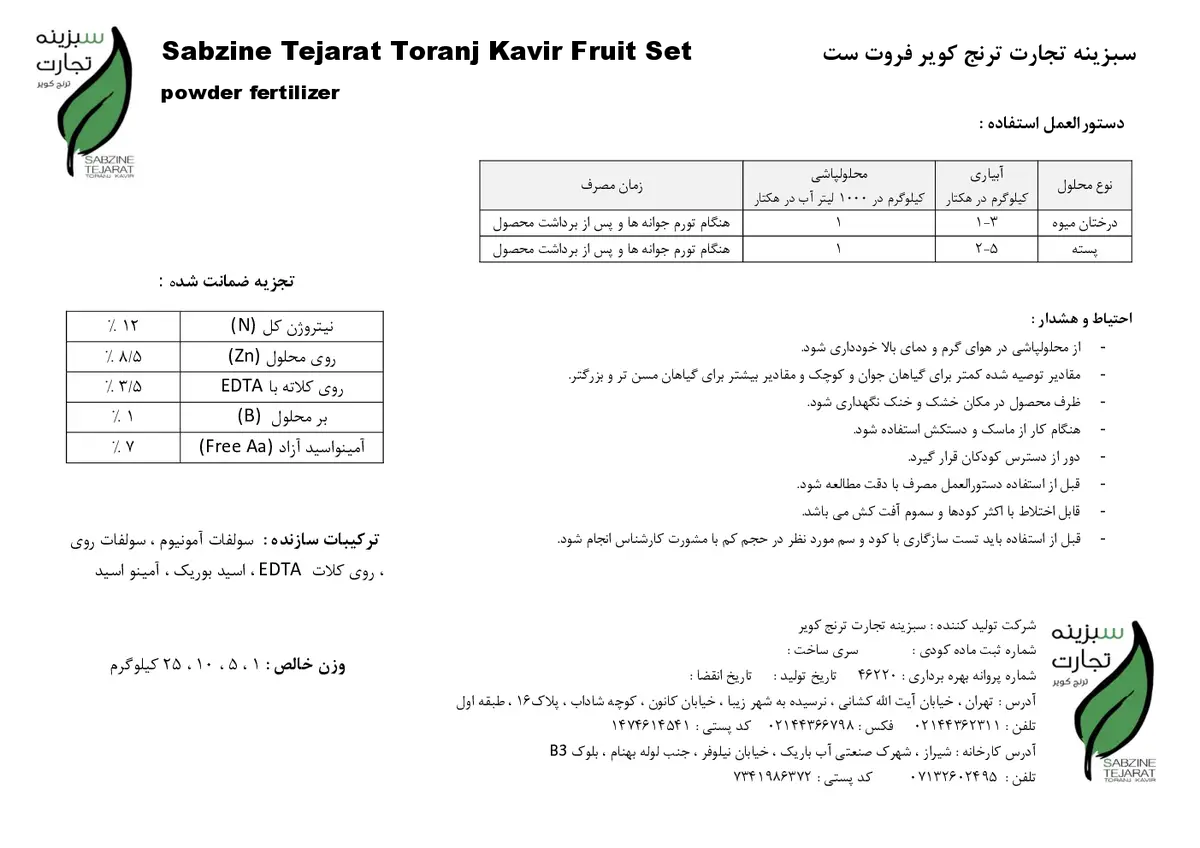 سبزینه
تجارت
ترنج کویر
SABZINE
TEJARAT
TORANJ KAVIR
Sabzine Tejarat Toranj Kavir Fruit Set
powder fertilizer
سبزینه تجارت ترنج کویر فروت ست
دستورالعمل استفاده :
نوع محلول | آبیاری کیلوگرم در هکتار | محلولپاشی کیلوگرم در ۱۰۰۰ لیتر آب در هکتار | زمان مصرف
درختان میوه | ۱-۳ | ۱ | هنگام تورم جوانه ها و پس از برداشت محصول
پسته | ۲-۵ | ۱ | هنگام تورم جوانه ها و پس از برداشت محصول
تجزیه ضمانت شده :
نیتروژن کل (N) | ۱۲ ٪
روی محلول (Zn) | ۸/۵ ٪
روی کلاته با EDTA | ۳/۵ ٪
بر محلول (B) | ۱ ٪
آمینواسید آزاد (Free Aa) | ۷ ٪
ترکیبات سازنده : سولفات آمونیوم ، سولفات روی
، روی کلات EDTA ، اسید بوریک ، آمینو اسید
وزن خالص : ۱ ، ۵ ، ۱۰ ، ۲۵ کیلوگرم
احتیاط و هشدار :
- از محلولپاشی در هوای گرم و دمای بالا خودداری شود.
- مقادیر توصیه شده کمتر برای گیاهان جوان و کوچک و مقادیر بیشتر برای گیاهان مسن تر و بزرگتر.
- ظرف محصول در مکان خشک و خنک نگهداری شود.
- هنگام کار از ماسک و دستکش استفاده شود.
- دور از دسترس کودکان قرار گیرد.
- قبل از استفاده دستورالعمل مصرف با دقت مطالعه شود.
- قابل اختلاط با اکثر کودها و سموم آفت کش می باشد.
- قبل از استفاده باید تست سازگاری با کود و سم مورد نظر در حجم کم با مشورت کارشناس انجام شود.
شرکت تولید کننده : سبزینه تجارت ترنج کویر
شماره ثبت ماده کودی : سری ساخت :
شماره پروانه بهره برداری : ۴۶۲۲۰ تاریخ تولید : تاریخ انقضا :
آدرس : تهران ، خیابان آیت الله کشانی ، نرسیده به شهر زیبا ، خیابان کانون ، کوچه شاداب ، پلاک۱۶ ، طبقه اول
تلفن : ۰۲۱۴۴۳۶۲۳۱۱ فکس : ۰۲۱۴۴۳۶۶۷۹۸ کد پستی : ۱۴۷۴۶۱۴۵۴۱
آدرس کارخانه : شیراز ، شهرک صنعتی آب باریک ، خیابان نیلوفر ، جنب لوله بهنام ، بلوک B3
تلفن : ۰۷۱۳۲۶۰۲۴۹۵ کد پستی : ۷۳۴۱۹۸۶۳۷۲
سبزینه
تجارت
ترنج کویر
SABZINE
TEJARAT
TORANJ KAVIR